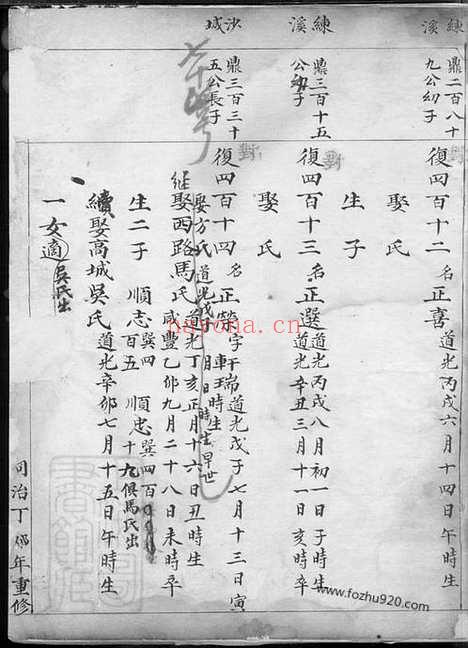 練溪
鼎二百八十
九公幼子
對
復四百十二 名正喜 道光丙戌六月十四日午時生
娶氏
練溪
鼎三百十五
公幼子
對
復四百十三 名正選 道光丙戌八月初一日子時生
道光辛丑三月十一日亥時卒
生子
娶氏
沙城
鼎三百三十
五公長子
對
復四百十四 名正榮 字干瑞 道光戊子七月十三日寅
時生
娶方氏 道光戊 月 日 時生早世
継娶西路馬氏 道光丁亥正月十六日丑時生
咸豐乙卯九月二十八日未時卒
生二子 順志 巽四百五 順忠 巽四百
十九俱馬氏出
續娶高城吳氏 道光辛卯七月十五日午時生
一女適 吳氏出
同治丁卯年重修
nayona.cn
www.fozhu920.com